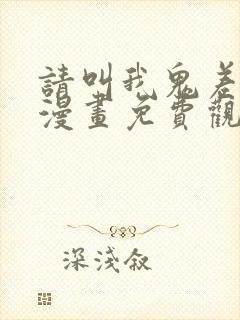 請叫我鬼差
漫畫免費觀
深淺叙